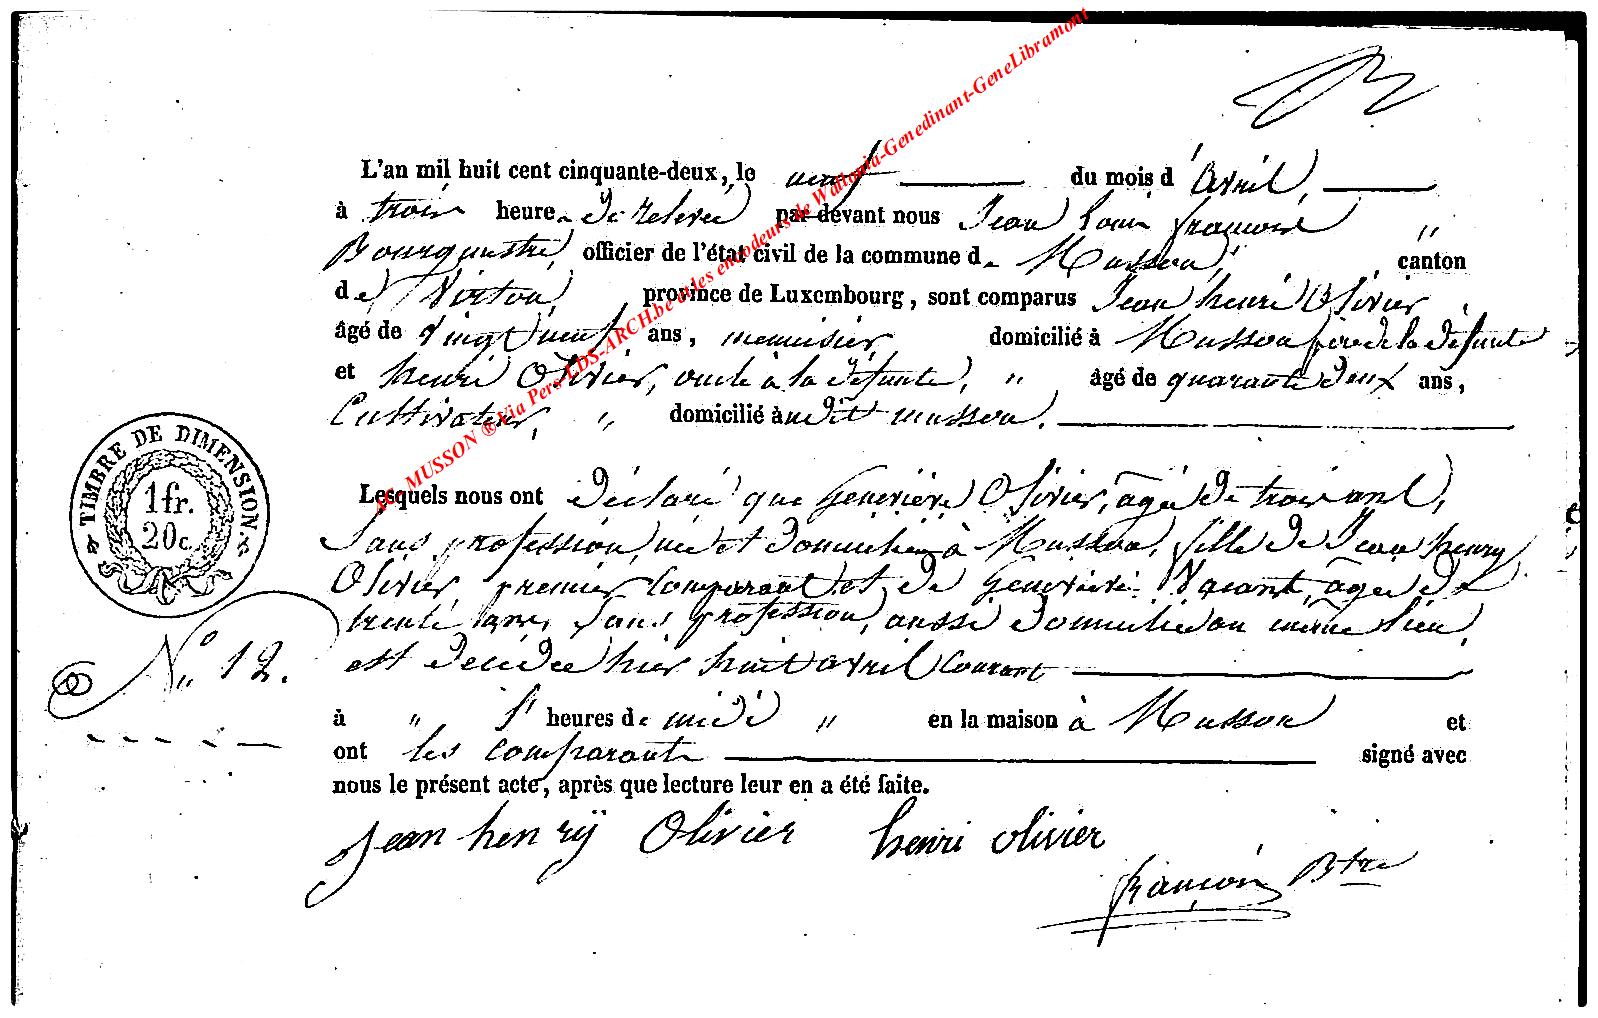 L'an mil huit cent cinquante-deux, le neuf du mois d'avril,
à trois heures de relevée par-devant nous Jean Louis françois "
Bourguestre, officier de l'état civil de la commune de Musson, canton
de Virton, province de Luxembourg, sont comparus Jean henri Olivier
âgé de vingt neuf ans, menuisier domicilié à Musson père de la défunte
et henri Olivier, oncle à la défunte, " âgé de quarante deux ans,
Cultivateur, " domicilié audit musson.
Lesquels nous ont déclaré que Geneviève Olivier, âgée de trois ans,
sans profession, née et domiciliée à Musson, fille de Jean henry
Olivier premier comparant et de Geneviève âgée de
trente ans, sans profession, aussi domiciliée au même lieu,
est décédée hier huit avril courant
à " heures de midi " en la maison à Musson et
ont les comparants signé avec
nous le présent acte, après que lecture leur en a été faite.
Jean henry Olivier henri olivier
françois Btre
TIMBRE DE DIMENSION
1 fr.
20 c.
N° 12.
MUSSON ® Via Pers-LDS-ARCH.be et les encodeurs de Wallonia-Genedinant-GeneLibramont